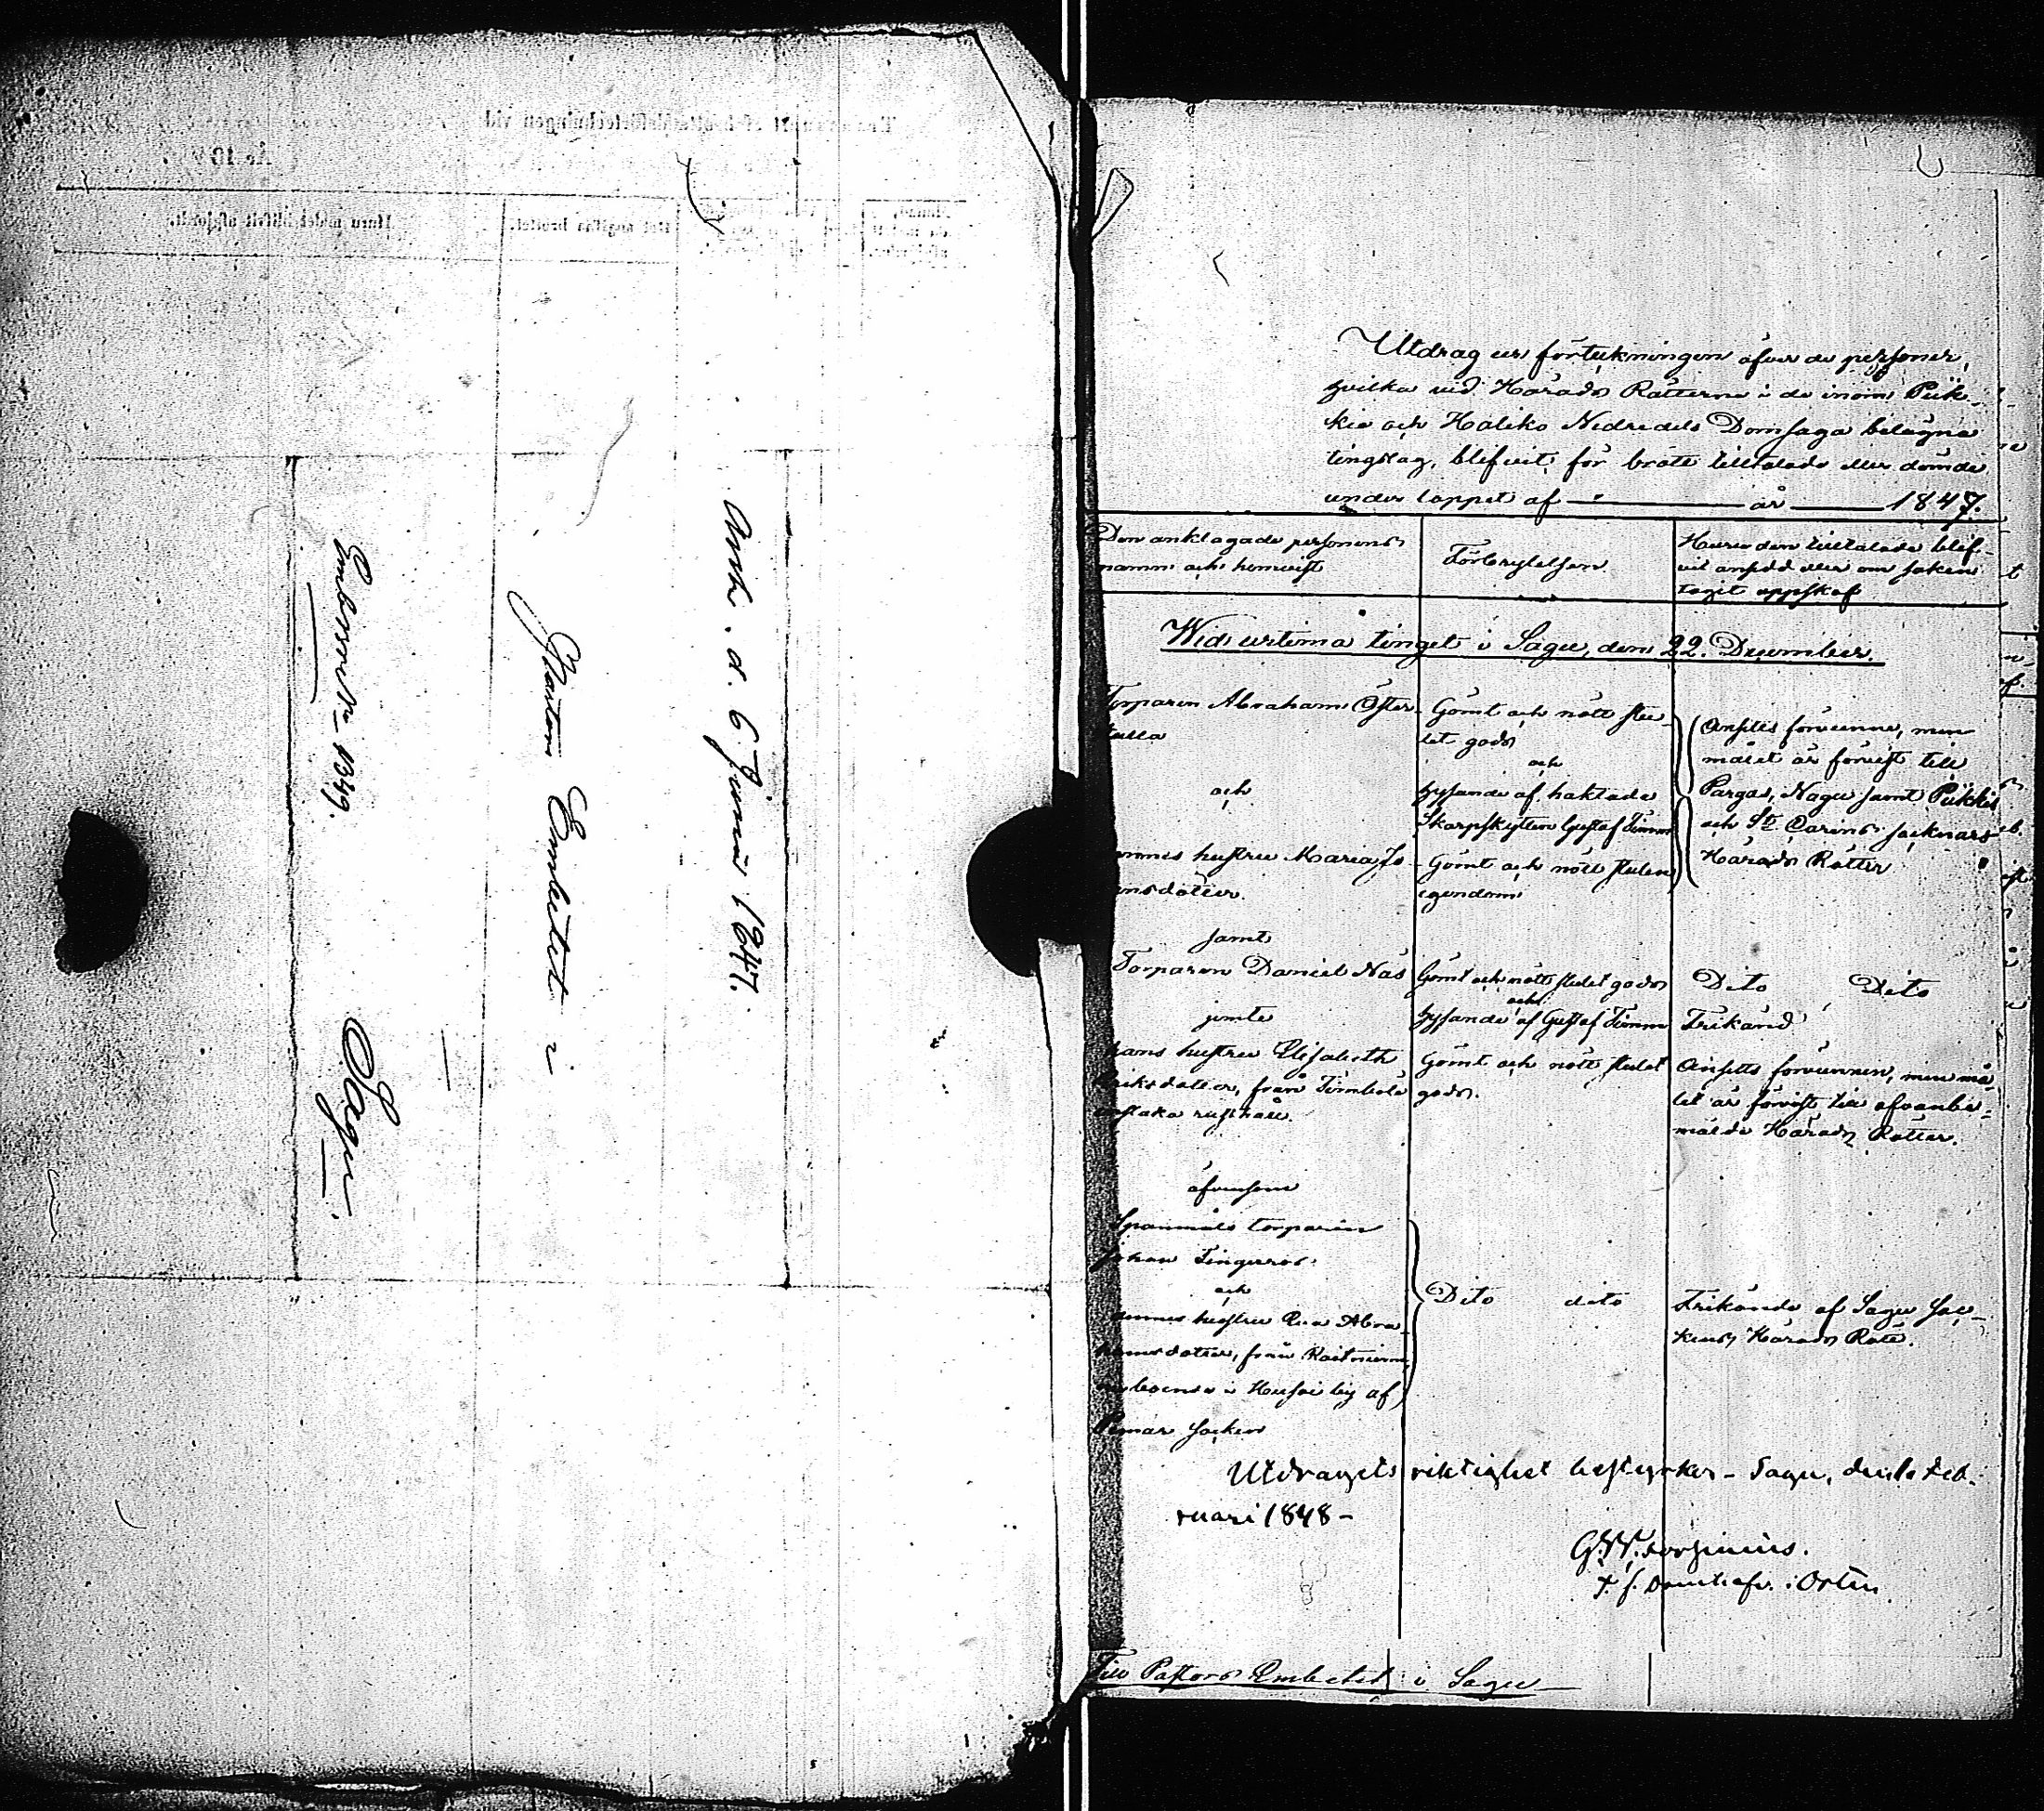 Ank. d. 6 Junii 1847.
Pastors Embetet i
Sagu.
Utdrag ur förtekningen öfver de personer,
hvilka vid Härads Rätterne i de inom Pik-
kie och Haliko Nedredels Domsaga belägna
tingslag, blifvit för brott tilltalade eller dömde
under loppet af år 1847.
Den anklagade personens
namn och hemvist
Förbrytelsen
Huru den tilltalade blif-
vit ansedd eller om saken
tagit uppskof
Wid urtima tinget i Sagu, den 22. December.
Torparen Abraham Öster-
talla
och
hustru Maria Jo-
ansdotter.
samt
Torparen Daniel Näs
jemte
hans hustru Elisabeth
Eriksdotter, från Timbola
rusthåll.
äfvensom
Spannmåls torparen
Johan Tingerroo
och
hustru Eva Abra-
hamsdotter, från
i by af
Pemar Socken
Gömt och nött stu-
let gods
och
hysande af häktade
Skarpskytten Gustaf Timm
Gömt och nött stulen
egendom
Gömt och nött stulet gods
och
hysande af Gustaf Timm
Gömt och nött stulet
gods.
Dito dito
Ansetts förvunne, men
målet är förvist till
Pargas, Nagu samt Pikkis
och St Carins socknars
Härads Rätter
Dito Dito
Frikänd
Ansetts förvunnen, men må-
let är förvist till ofvanbe-
mälde Härads Rätter.
Frikände af Sagu soc-
kens Härads Rätt.
Utdragets riktighet bestyrker - Sagu, den Feb-
ruari 1848 -
T. f. Domhafv. i Orten
Till Pastors Embetet i Sagu